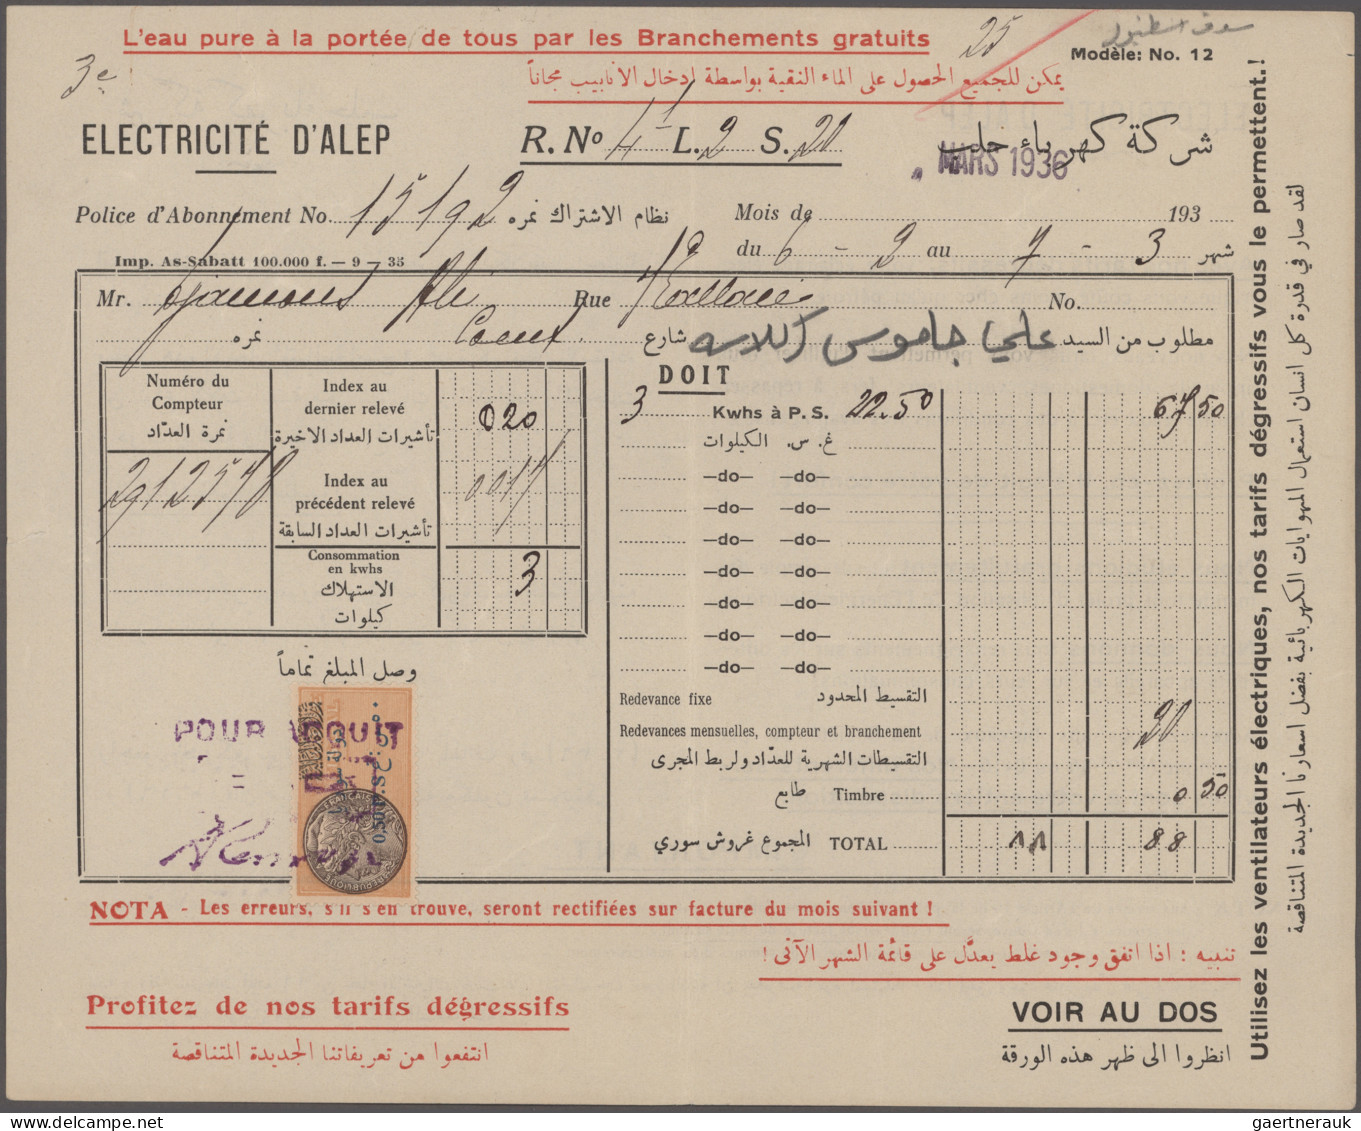 سوق اسطنبول
L'eau pure à la portée de tous par les Branchements gratuits
25
Modèle: No. 12
3e
يمكن للجميع الحصول على الماء النقية بواسطة إدخال الانابيب مجاناً
ELECTRICITÉ D'ALEP
R. No 4 L. 2 S. 20
شركة كهرباء حلب
MARS 1936
Police d'Abonnement No. 15192 نظام الاشتراك نمره
Mois de 193
du 6 - 2 au 7 - 3 شهر
Imp. As-Sabatt 100.000 f. — 9 — 35
Mr. Djamous Ali Rue No.
نمره شارع علي جاموس مطلوب من السيد
Numéro du Compteur
نمرة العدّاد
2912578
Index au dernier relevé 020
تأشيرات العداد الاخيرة
Index au précédent relevé 0017
تأشيرات العداد السابقة
Consommation en kwhs 3
الاستهلاك
كيلوات
DOIT
3 Kwhs à P. S. 22.50 67 50
غ. س. الكيلوات
—do— —do—
—do— —do—
—do— —do—
—do— —do—
—do— —do—
—do— —do—
—do— —do—
Redevance fixe التقسيط المحدود
Redevances mensuelles, compteur et branchement 20
التقسيطات الشهرية للعدّاد ولربط المجرى
Timbre طابع 0 50
TOTAL المجموع غروش سوري 11 88
وصل المبلغ تماماً
POUR ACQUIT
NOTA - Les erreurs, s'il s'en trouve, seront rectifiées sur facture du mois suivant !
تنبيه : اذا اتفق وجود غلط يعدَّل على قائمة الشهر الآتى !
Profitez de nos tarifs dégressifs
انتفعوا من تعريفاتنا الجديدة المتناقصة
VOIR AU DOS
انظروا الى ظهر هذه الورقة
Utilisez les ventilateurs électriques, nos tarifs dégressifs vous le permettent.!
لقد صار في قدرة كل انسان استعمال المهوايات الكهربائية بفضل اسعارنا الجديدة المتناقصة
gaertnerauk